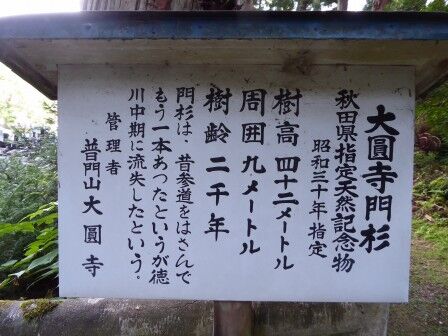 大圓寺門杉
秋田県指定天然記念物
昭和三十年指定
樹高 四十二メートル
周囲 九メートル
樹齢 二千年
門杉は、昔参道をはさんで
もう一本あつたというが徳
川中期に流失したという。
管理者
普門山 大圓寺